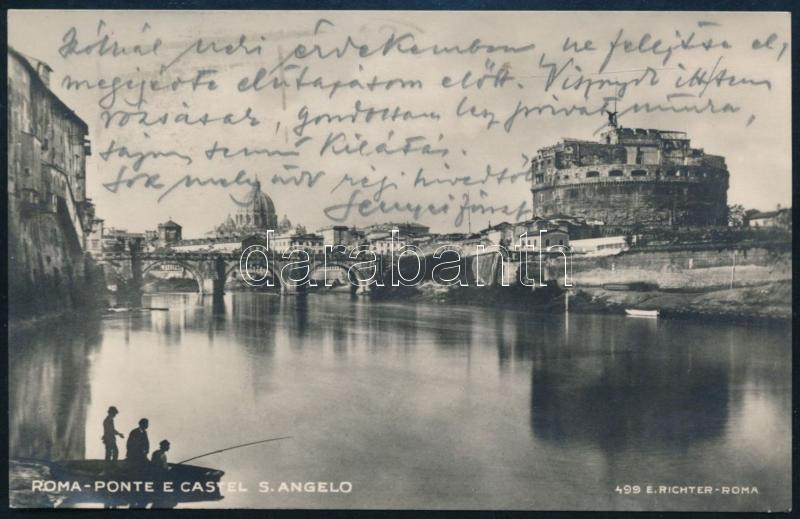 Szólnál neki érdekemben, ne felejtse el,
megígérte elutazásom előtt. Viszont itt sem
rózsásak, gondoltam lesz privát munka,
sajnos semmi kilátás.
Sok mély üdv régi hívedtől
Fenyei József
darabanth
ROMA-PONTE E CASTEL S. ANGELO
499 E. RICHTER-ROMA